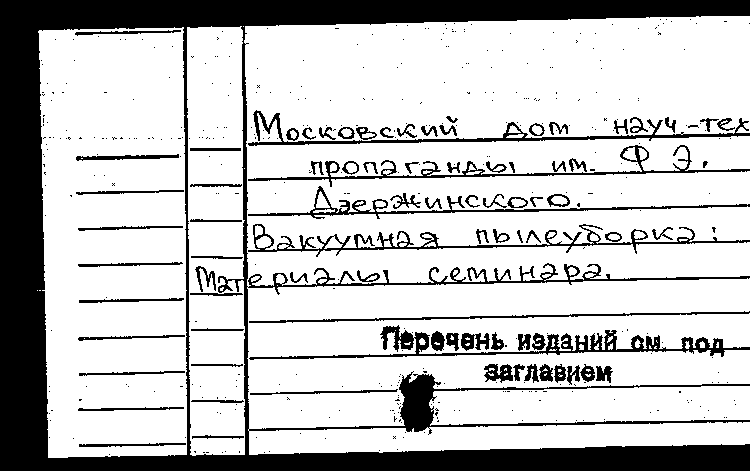 Московский дом науч.-тех
пропаганды им. Ф Э.
Дзержинского.
Вакуумная пылеуборка:
Материалы семинара.
Перечень изданий см. под
заглавием